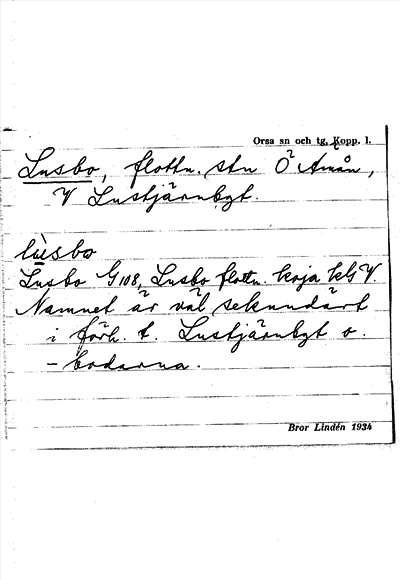 Orsa sn och tg, Kopp. l.
Lusbo, flottn. stn Ö Amån,
V Lustjärnbgt.
lùsbo
Lusbo G108, Lusbo flottn. koja kls V.
Namnet är väl sekundärt
i förh. t. Lustjärnbgt o.
- bodarna.
Bror Lindén 1934